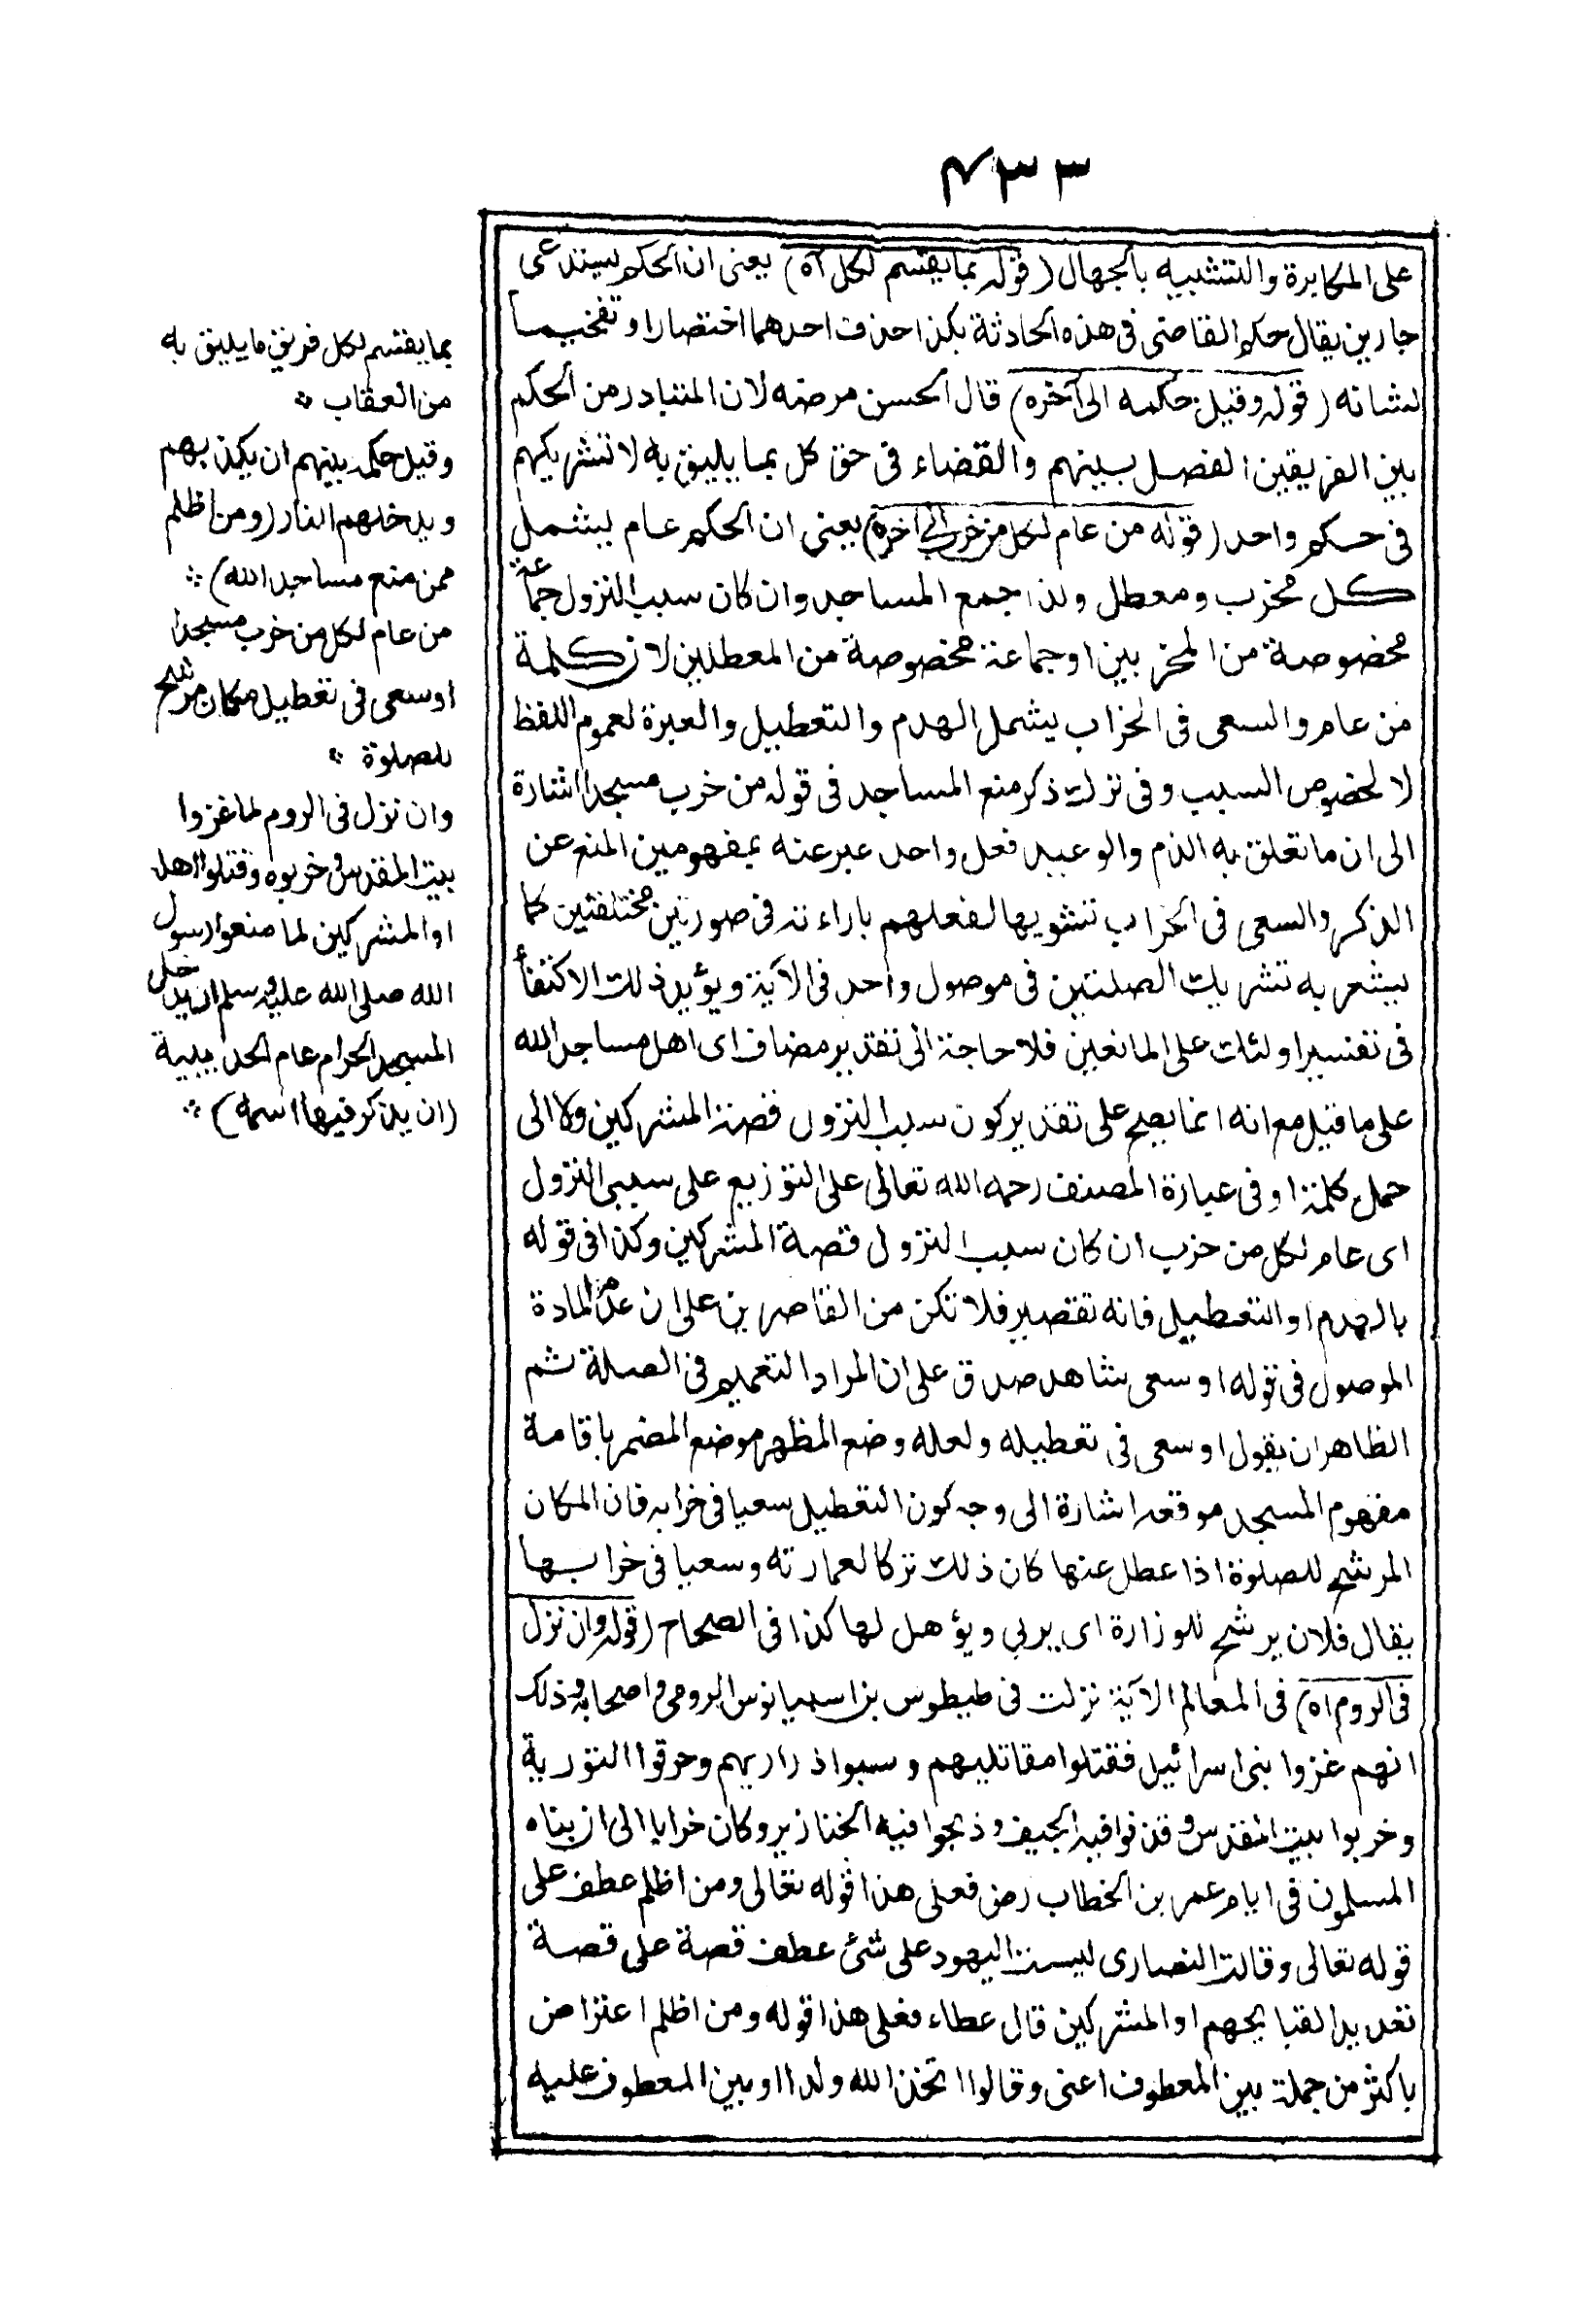 ٤٣٣
على المكابرة والتشبيه بالجهال (قوله بما يقسم لكل آه) يعنى ان الحكم يستدعى
جارين يقال حكم القاضى فى هذه الحادثة بكذا حذف احدهما اختصارا وتفخيما
لشانه (قوله وقيل حكمه الى آخره) قال الحسن مرضه لان المتبادر من الحكم
بين الفريقين الفصل بينهم والقضاء فى حق كل بما يليق به لا تشريكهم
فى حكم واحد (قوله من عام لكل من خرب الى آخره) يعنى ان الحكم عام ليشمل
كل مخرب ومعطل ولذا جمع المساجد وان كان سبب النزول جماعة
مخصوصة من المخربين او جماعة مخصوصة من المعطلين لان كلمة
من عام والسعى فى الخراب يشمل الهدم والتعطيل والعبرة لعموم اللفظ
لا لخصوص السبب وفى ترك ذكر منع المساجد فى قوله من خرب مسجدا اشارة
الى ان ما تعلق به الذم والوعيد فعل واحد عبر عنه بمفهومين المنع عن
الذكر والسعى فى الخراب تشويها لفعلهم باراءته فى صورتين مختلفتين كما
يشعر به تشريك الصلتين فى موصول واحد فى الآية ويؤيد ذلك الاكتفأ
فى تفسير اولئك على المانعين فلا حاجة الى تقدير مضاف اى اهل مساجد الله
على ما قيل مع انه انما يصح على تقدير كون سبب النزول قصة المشركين ولا الى
حمل كلمة او فى عبارة المصنف رحمه الله تعالى على التوزيع على سببى النزول
اى عام لكل من خرب ان كان سبب النزول قصة المشركين وكذا فى قوله
بالهدم او التعطيل فانه تقصير فلا تكن من القاصرين على ان عدم المادة
الموصول فى قوله او سعى شاهد صدق على ان المراد التعميم فى الصلة ثم
الظاهر ان يقول او سعى فى تعطيله ولعله وضع المظهر موضع المضمر باقامة
مفهوم المسجد موقعه اشارة الى وجه كون التعطيل سعيا فى خرابه فان المكان
المرشح للصلوة اذا عطل عنها كان ذلك تركا لعمارته وسعيا فى خرابها
يقال فلان يرشح للوزارة اى يربى ويؤهل لها كذا فى الصحاح (قوله وان نزل
فى الروم آه) فى المعالم الآية نزلت فى طيطوس بن اسبيانوس الرومى واصحابه وذلك
انهم غزوا بنى اسرائيل فقتلوا مقاتليهم وسبوا ذراريهم وحرقوا التورية
وخربوا بيت المقدس وقذفوا فيه الجيف وذبحوا فيه الخنازير وكان خرابا الى ان بناه
المسلمون فى ايام عمر بن الخطاب رض فعلى هذا قوله تعالى ومن اظلم عطف على
قوله تعالى وقالت النصارى ليست اليهود على شئ عطف قصة على قصة
تعديدا لقبايحهم او المشركين قال عطاء فعلى هذا قوله ومن اظلم اعتراض
باكثر من جملة بين المعطوف اعنى وقالوا اتخذ الله ولدا او بين المعطوف عليه
بما يقسم لكل فريق ما يليق به
من العقاب
وقيل حكمه بينهم ان يكذبهم
ويدخلهم النار (ومن اظلم
ممن منع مساجد الله)
من عام لكل من خرب مسجدا
او سعى فى تعطيل مكان مرشح
للصلوة
وان نزل فى الروم لما غزوا
بيت المقدس وخربوه وقتلوا اهله
او المشركين لما منعوا رسول
الله صلى الله عليه وسلم ان يدخل
المسجد الحرام عام الحديبية
(ان يذكر فيها اسمه)